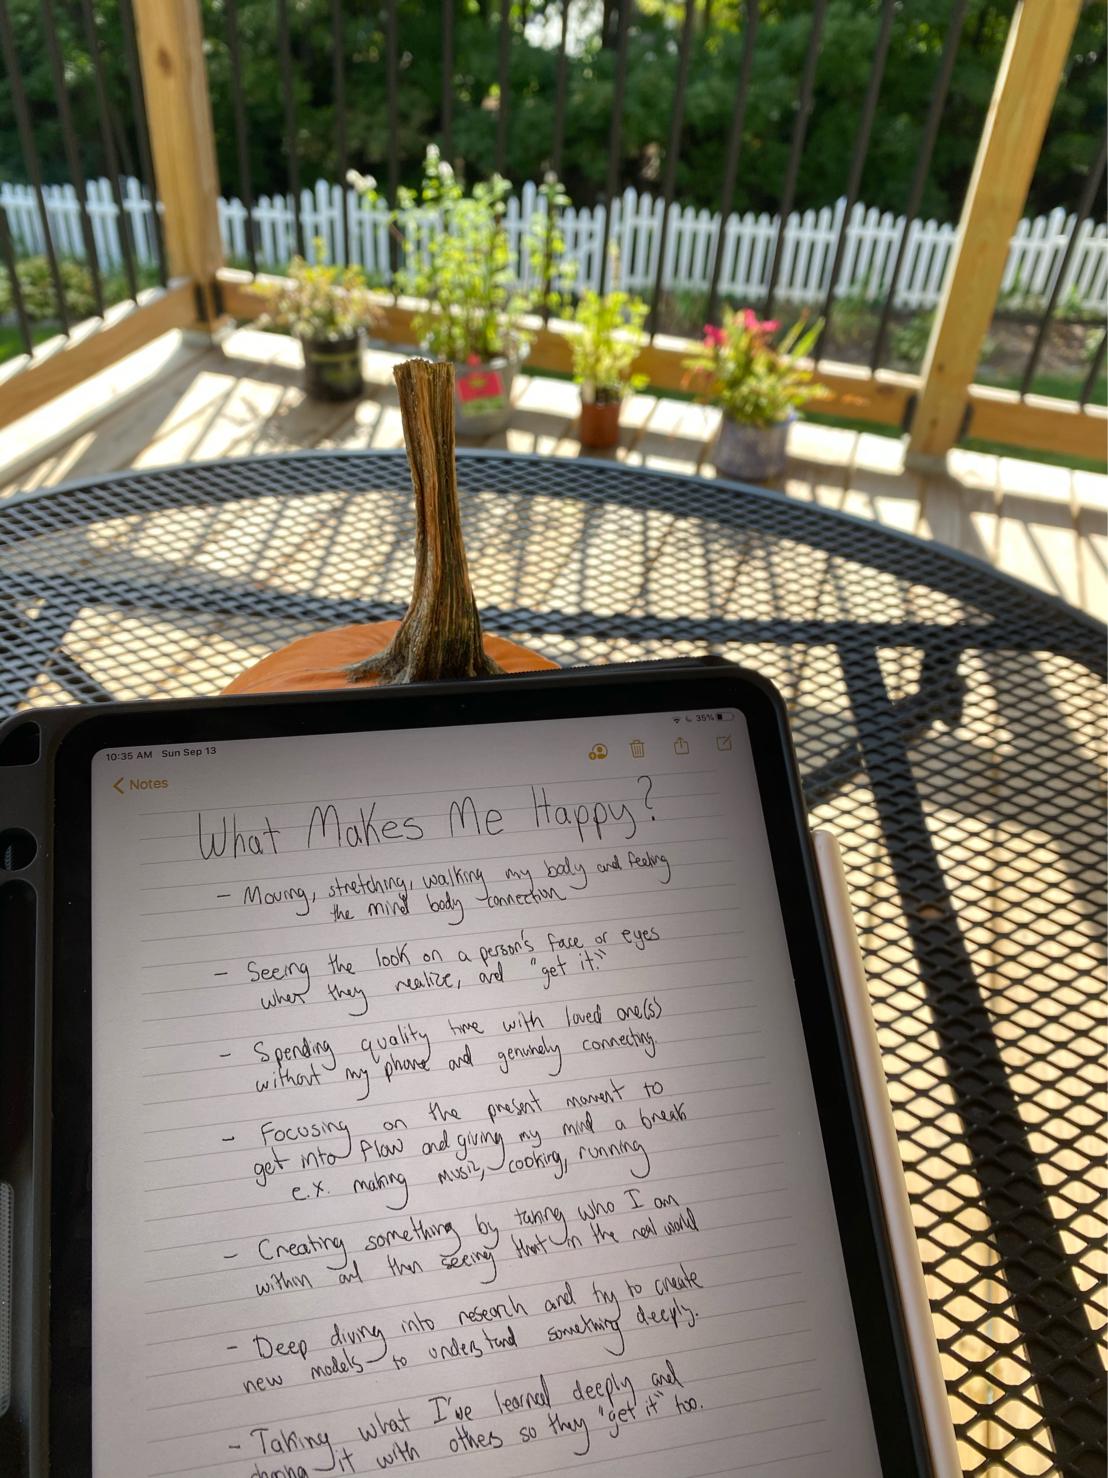 10:35 AM Sun Sep 13
35%
Notes
What Makes Me Happy?
- Moving, stretching, walking my body and feeling
the mind body connection
- Seeing the look on a person's face or eyes
when they realize, and "get it."
- Spending quality time with loved one(s)
without my phone and genuinely connecting.
- Focusing on the present moment to
get into flow and giving my mind a break
e.x. making music, cooking, running
- Creating something by taking who I am
within and then seeing that in the real world
- Deep diving into research and try to create
new models to understand something deeply.
- Taking what I've learned deeply and
it with others so they "get it" too.